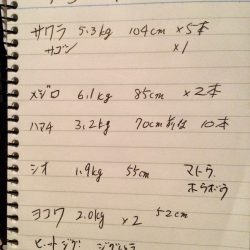 サワラ 5.3kg 104cm ×5本
サゴシ ×1
メジロ 6.1kg 85cm ×2本
ハマチ 3.2kg 70cm前後 10本
シオ 1.9kg 55cm マトウ
ホウボウ
ヨコワ 2.0kg ×2 52cm
ヒットジグ: